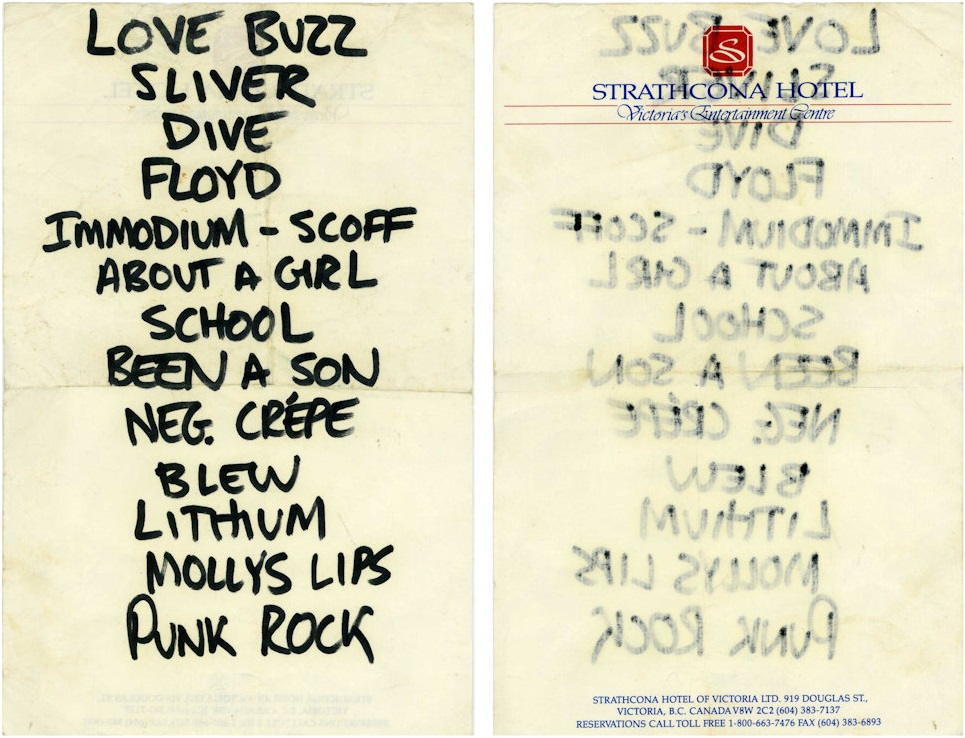 LOVE BUZZ
SLIVER
DIVE
FLOYD
IMMODIUM - SCOFF
ABOUT A GIRL
SCHOOL
BEEN A SON
NEG. CRÉPE
BLEW
LITHIUM
MOLLYS LIPS
PUNK ROCK
S
STRATHCONA HOTEL
Victoria's Entertainment Centre
STRATHCONA HOTEL OF VICTORIA LTD. 919 DOUGLAS ST.,
VICTORIA, B.C. CANADA V8W 2C2 (604) 383-7137
RESERVATIONS CALL TOLL FREE 1-800-663-7476 FAX (604) 383-6893